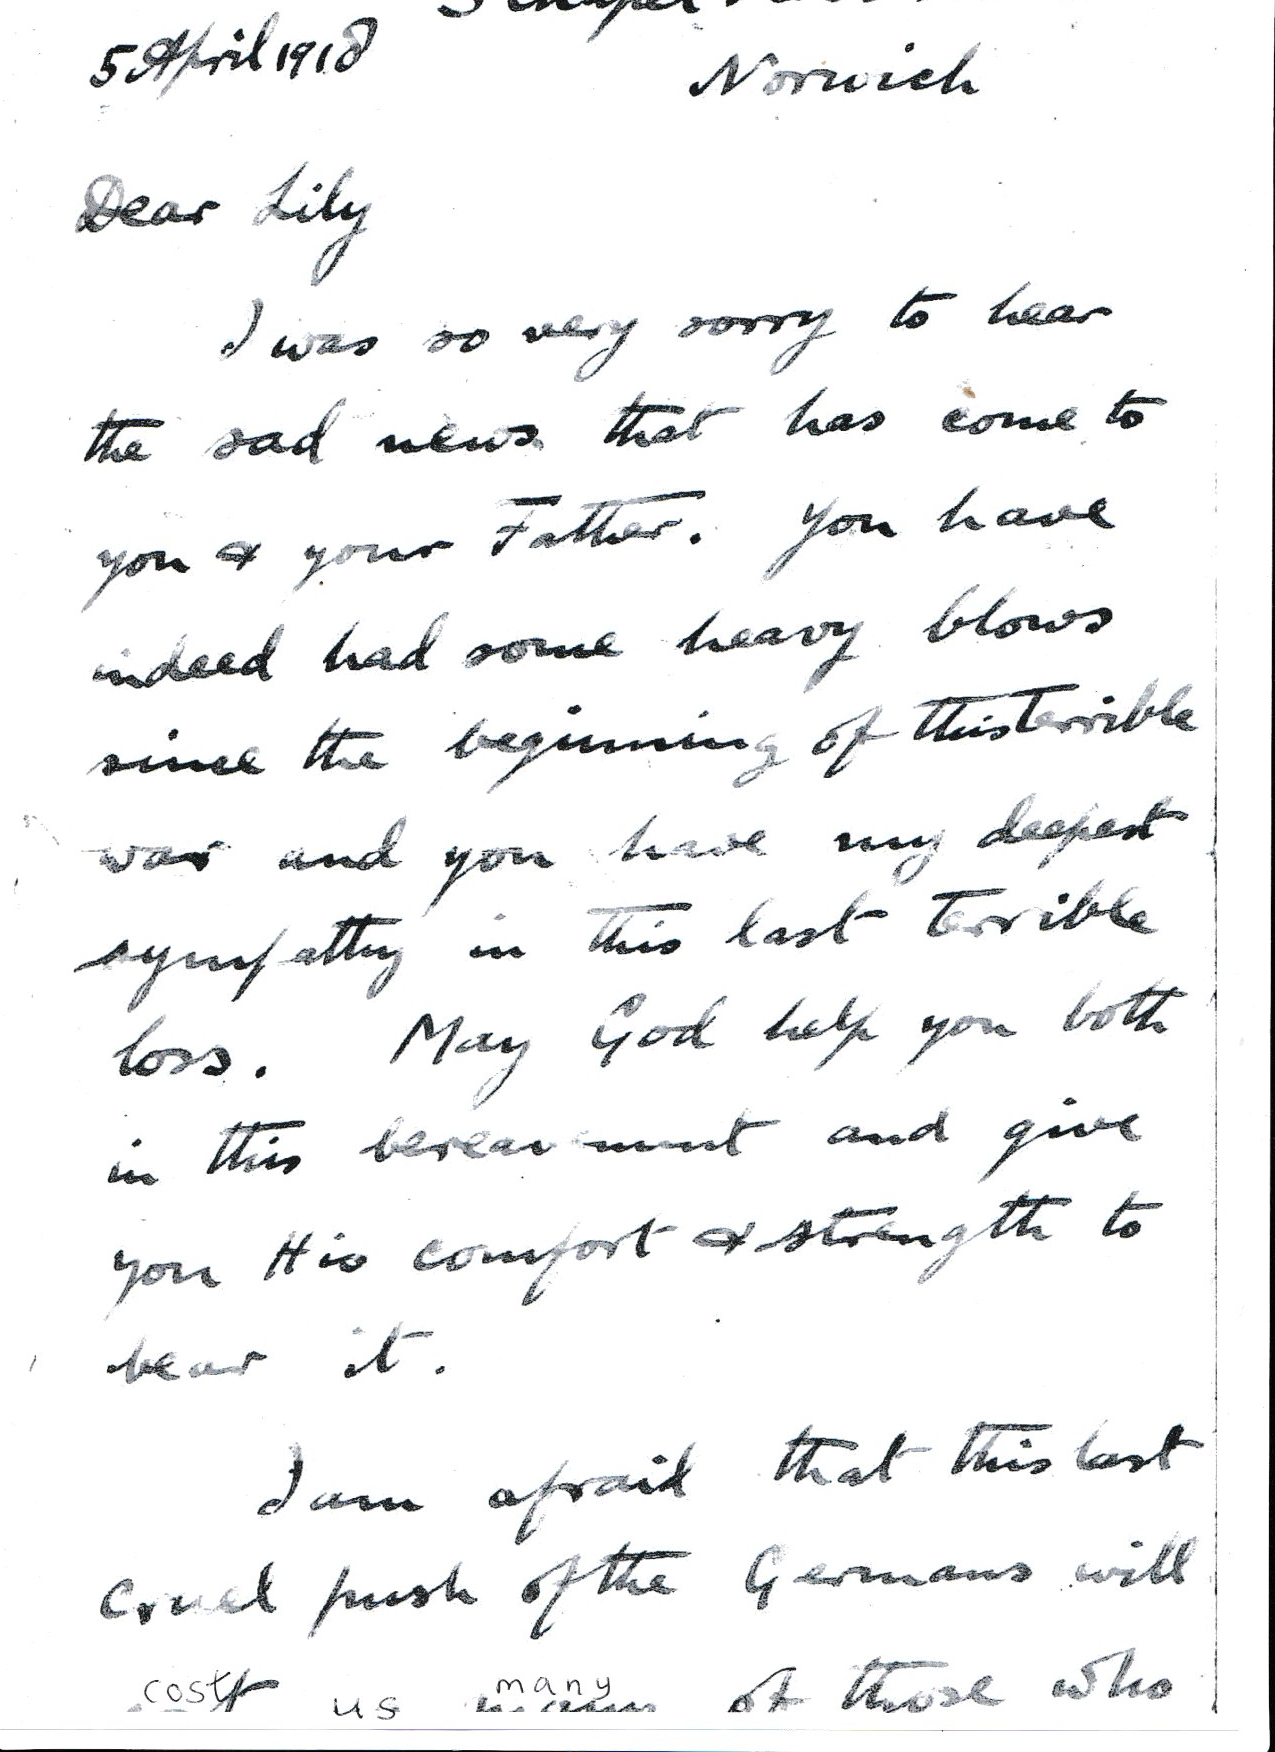 5 April 1918
Norwich
Dear Lily
I was so very sorry to hear
the sad news that has come to
you & your Father. You have
indeed had some heavy blows
since the beginning of this terrible
war and you have my deepest
sympathy in this last terrible
loss. May God help you both
in this bereavement and give
you His comfort & strength to
bear it.
I am afraid that this last
cruel push of the Germans will
cost us many of those who